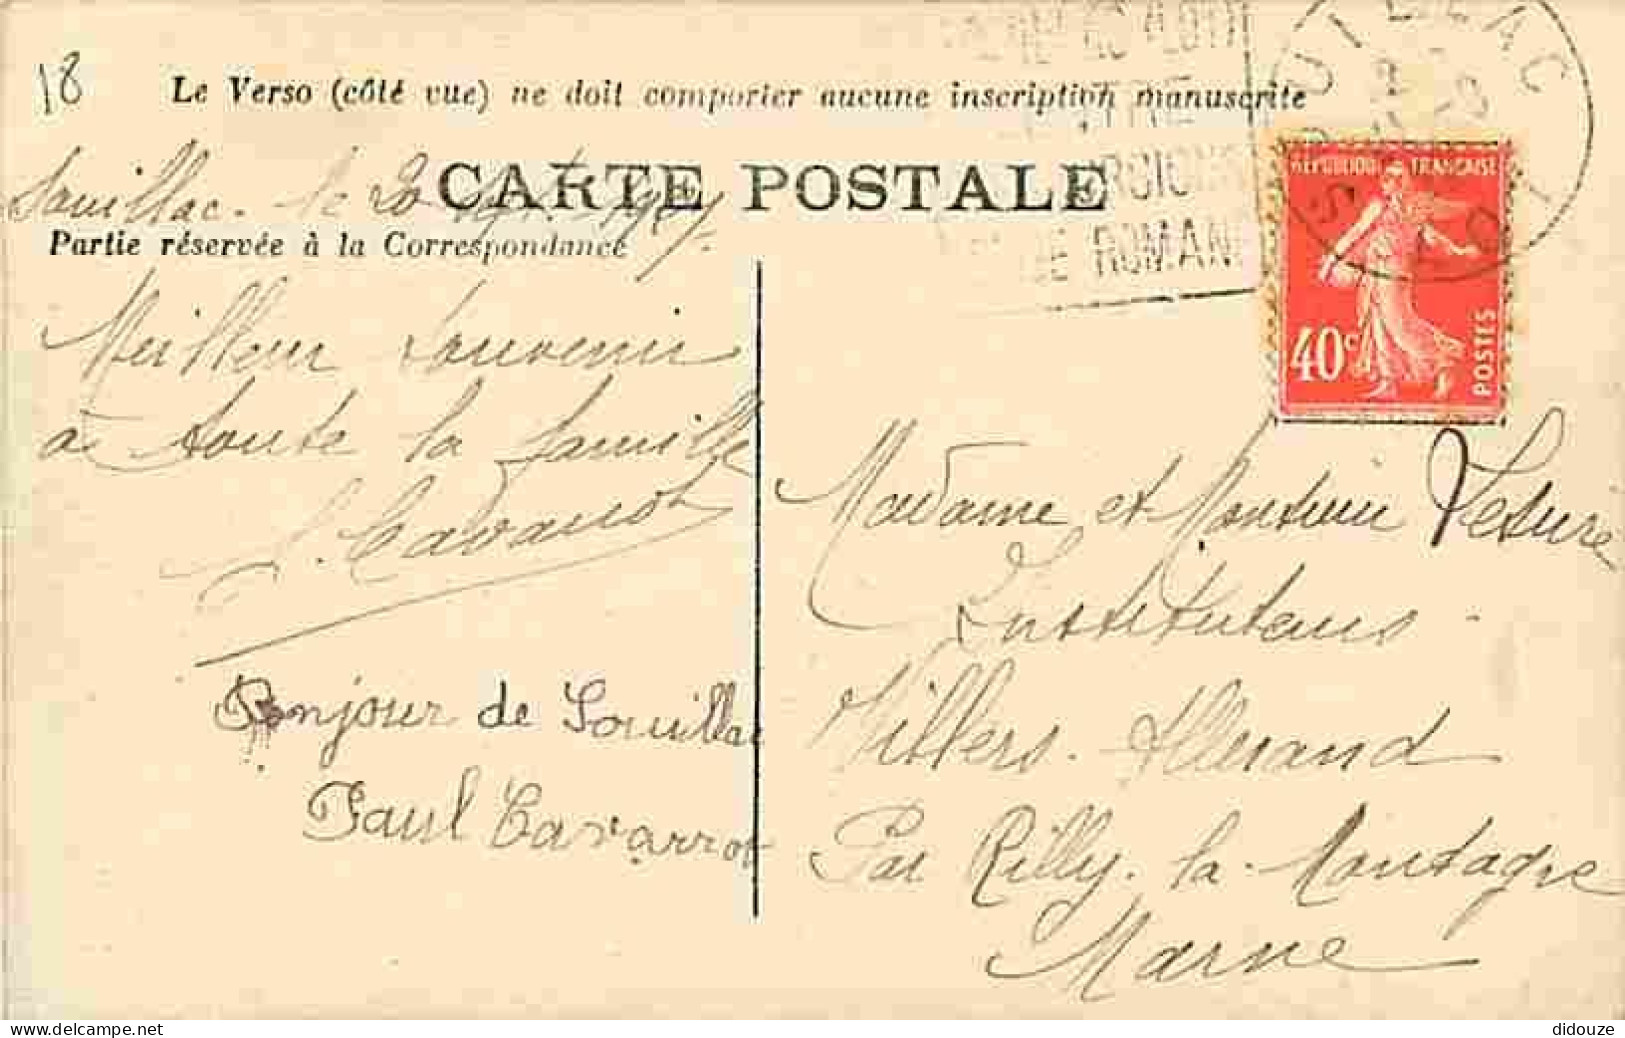 18
Le Verso (côté vue) ne doit comporter aucune inscription manuscrite
CARTE POSTALE
Souillac. le 20
Partie réservée à la Correspondance
Meilleur souvenir
à toute la famille
Bonjour de Souillac
Paul Cavarrot
ROMAN
RÉPUBLIQUE FRANÇAISE
40c
POSTES
Madame et Monsieur
Instituteurs
Villers. Allerand
Par Rilly. la. Montagne
Marne
didouze